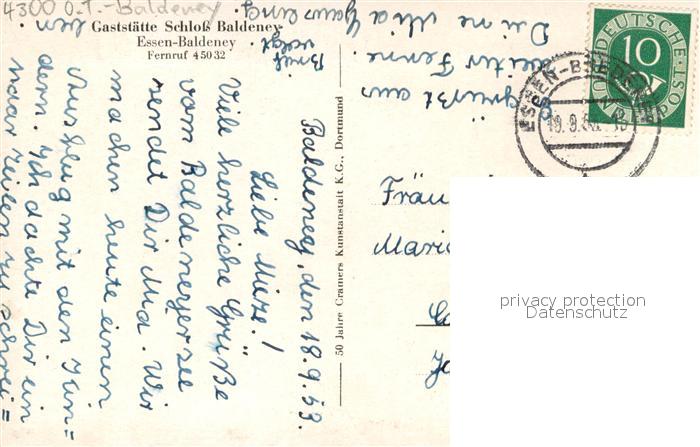 4300 O.T.-Baldeney
Gaststätte Schloß Baldeney
Essen-Baldeney
Fernruf 45032
Baldeney, den 18.9.53.
Liebe Mieze!
Viele herzliche Grüße
vom Baldeneyersee
sendet Dir Ma. Wir
machen heute einen
Ausflug mit den Kin=
dern. Ich dachte Dir ein
paar Zeilen zu schrei=
ben
Brief
folgt
grüßt aus
weiter Ferne
Deine Ma
50 Jahre Cramers Kunstanstalt K.G., Dortmund
DEUTSCHE POST
10
ESSEN-BREDENEY
Fräu
Mari
privacy protection
Datenschutz